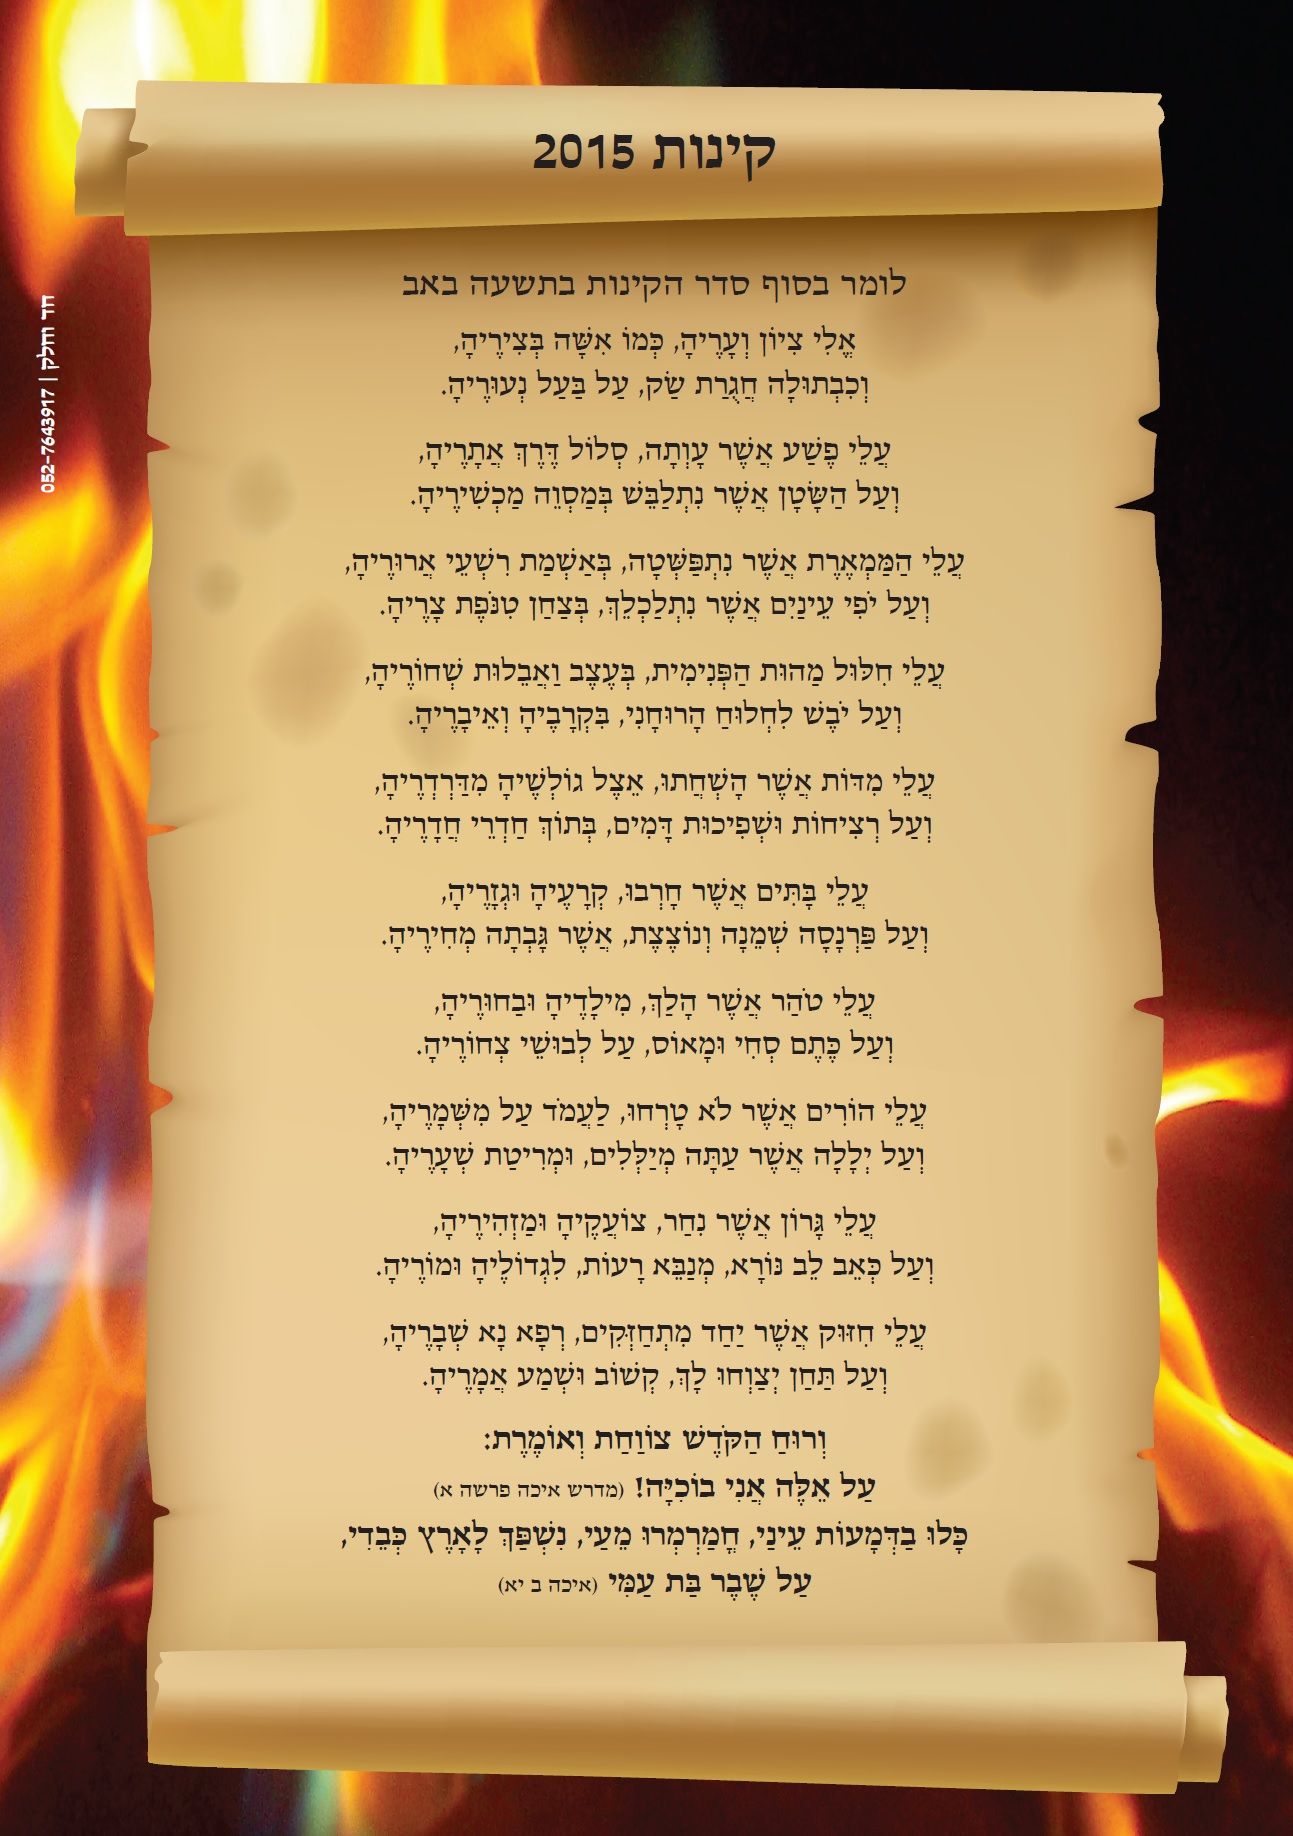 קינות 2015
לומר בסוף סדר הקינות בתשעה באב
אֱלִי צִיוֹן וְעָרֶיהָ, כְּמוֹ אִשָּׁה בְּצִירֶיהָ,
וְכִבְתוּלָה חֲגֻרַת שַׂק, עַל בַּעַל נְעוּרֶיהָ.
עֲלֵי פֶשַׁע אֲשֶׁר עָוְתָה, סְלוֹל דֶּרֶךְ אֲתָרֶיהָ,
וְעַל הַשָּׂטָן אֲשֶׁר נִתְלַבֵּשׁ בְּמַסְוֵה מַכְשִׁירֶיהָ.
עֲלֵי הַמַּמְאֶרֶת אֲשֶׁר נִתְפַּשְּׁטָה, בְּאַשְׁמַת רִשְׁעֵי אֲרוּרֶיהָ,
וְעַל יֹפִי עֵינַיִם אֲשֶׁר נִתְלַכְלֵךְ, בְּצַחַן טִנֹּפֶת צָרֶיהָ.
עֲלֵי חִלּוּל מַהוּת הַפְּנִימִית, בְּעֶצֶב וַאֲבֵלוּת שְׁחוֹרֶיהָ,
וְעַל יֹבֶשׁ לִחְלוּחַ הָרוּחָנִי, בִּקְרָבֶיהָ וְאֵיבָרֶיהָ.
עֲלֵי מִדּוֹת אֲשֶׁר הָשְׁחֲתוּ, אֵצֶל גוֹלְשֶׁיהָ מִדַּרְדְרֶיהָ,
וְעַל רְצִיחוֹת וּשְׁפִיכוּת דָּמִים, בְּתוֹךְ חַדְרֵי חֲדָרֶיהָ.
עֲלֵי בָּתִּים אֲשֶׁר חָרְבוּ, קְרָעֶיהָ וּגְזָרֶיהָ,
וְעַל פַּרְנָסָה שְׁמֵנָה וְנוֹצֶצֶת, אֲשֶׁר גָּבְתָה מְחִירֶיהָ.
עֲלֵי טֹהַר אֲשֶׁר הָלַךְ, מִילָדֶיהָ וּבַחוּרֶיהָ,
וְעַל כֶּתֶם סְחִי וּמָאוֹס, עַל לְבוּשֵׁי צְחוֹרֶיהָ.
עֲלֵי הוֹרִים אֲשֶׁר לֹא טָרְחוּ, לַעֲמֹד עַל מִשְּׁמָרֶיהָ,
וְעַל יְלָלָה אֲשֶׁר עַתָּה מְיַלְּלִים, וּמְרִיטַת שְׂעָרֶיהָ.
עֲלֵי גָּרוֹן אֲשֶׁר נִחַר, צוֹעֲקֶיהָ וּמַזְהִירֶיהָ,
וְעַל כְּאֵב לֵב נוֹרָא, מְנַבֵּא רָעוֹת, לִגְדוֹלֶיהָ וּמוֹרֶיהָ.
עֲלֵי חִזּוּק אֲשֶׁר יַחַד מִתְחַזְּקִים, רְפָא נָא שְׁבָרֶיהָ,
וְעַל תַּחַן יְצַוְחוּ לָךְ, קְשׁוֹב וּשְׁמַע אֲמָרֶיהָ.
וְרוּחַ הַקֹּדֶשׁ צוֹוַחַת וְאוֹמֶרֶת:
עַל אֵלֶּה אֲנִי בוֹכִיָּה! (מדרש איכה פרשה א)
כָּלוּ בַדְּמָעוֹת עֵינַי, חֳמַרְמְרוּ מֵעַי, נִשְׁפַּךְ לָאָרֶץ כְּבֵדִי,
עַל שֶׁבֶר בַּת עַמִּי (איכה ב יא)
חד וחלק | 052-7643917